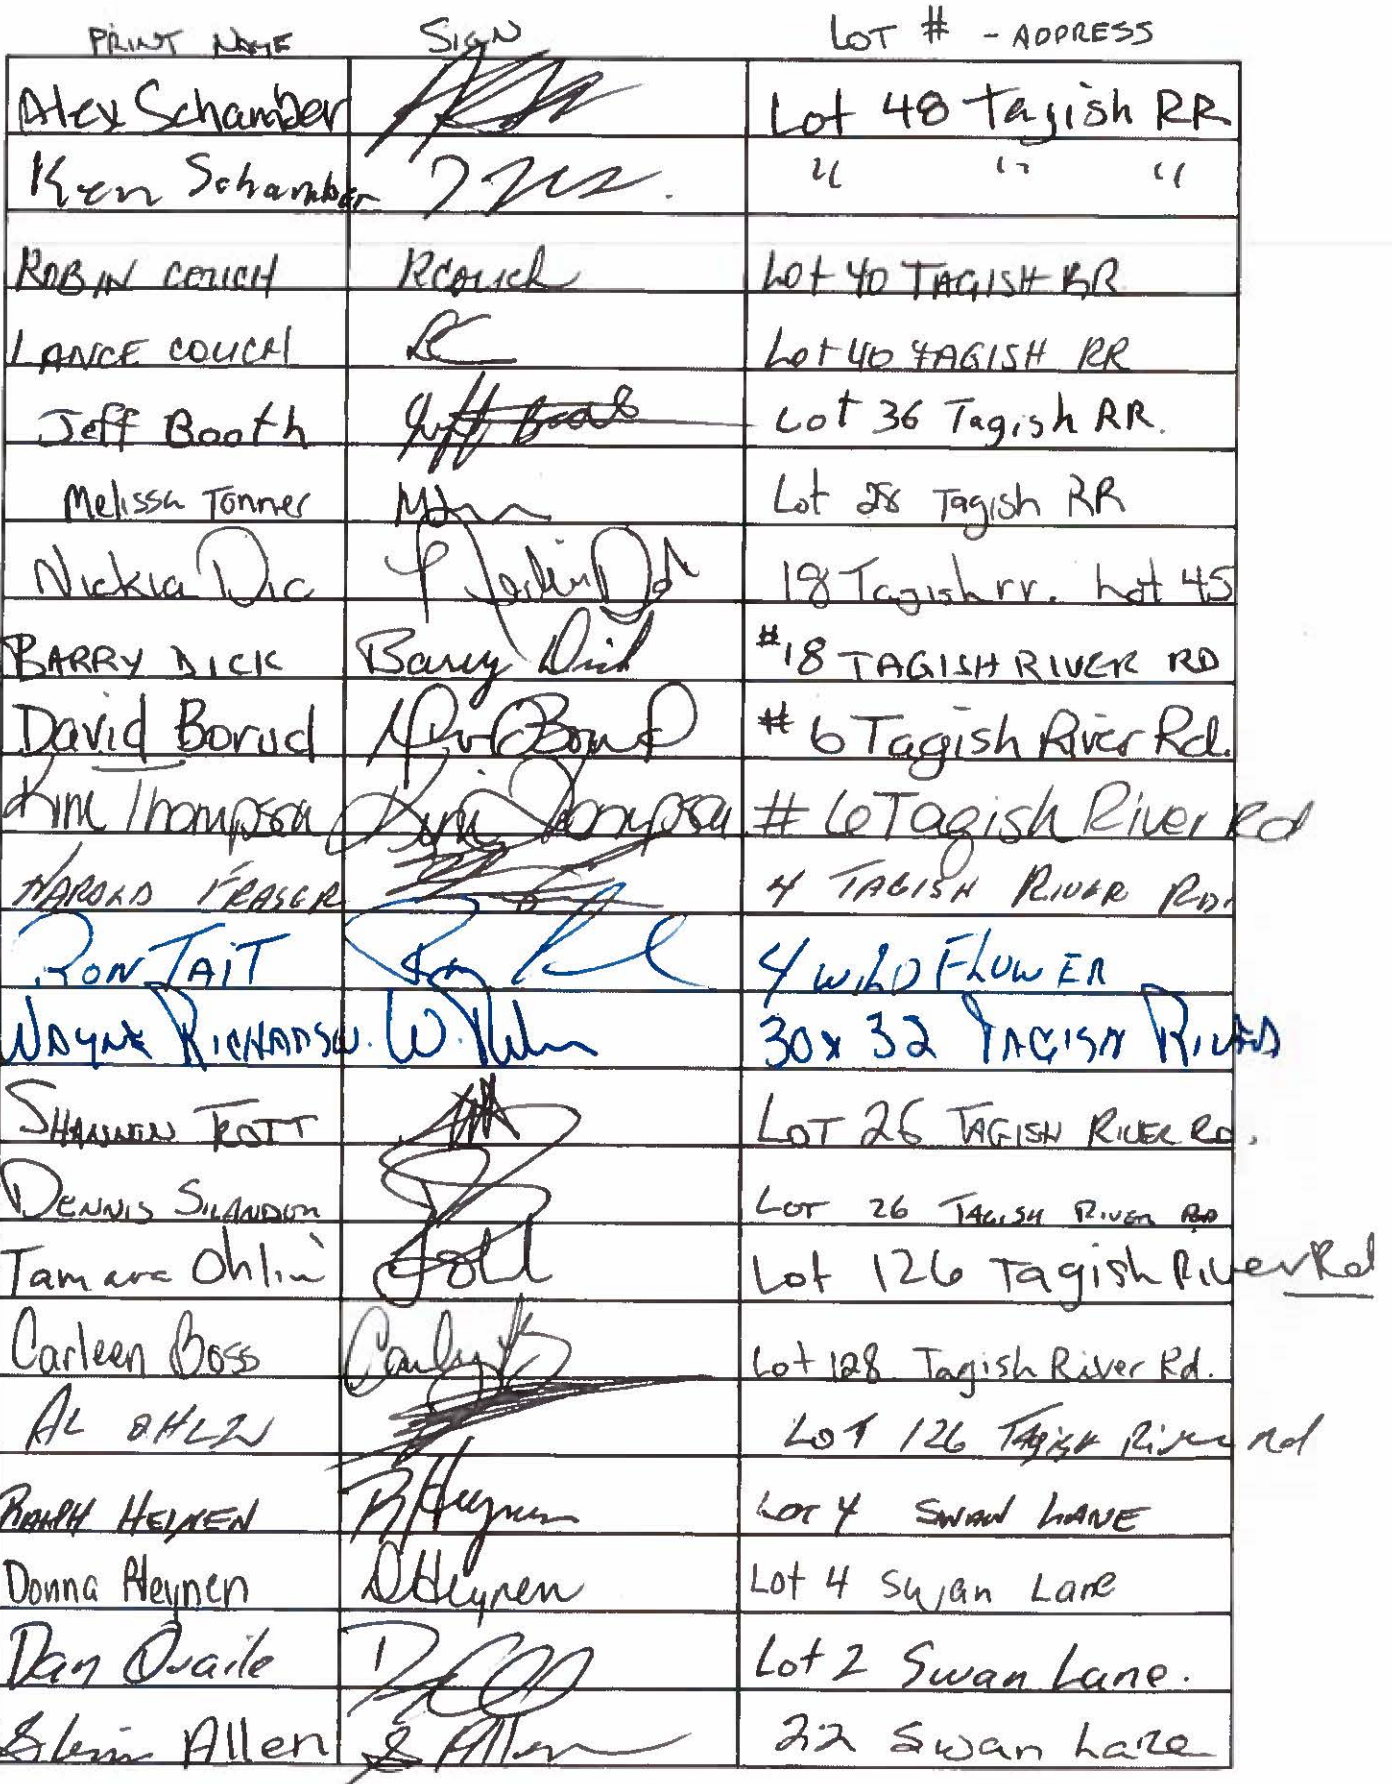 PRINT NAME SIGN LOT # - ADDRESS
Alex Schamber Lot 48 Tagish RR
Ken Schamber " " "
ROBIN COUCH RCouch Lot 40 TAGISH RR
LANCE COUCH LC Lot 40 TAGISH RR
Jeff Booth Jeff Booth Lot 36 Tagish RR.
Melissa Tonner Lot 28 Tagish RR
Nickia Dic 18 Tagish rr. Lot 45
BARRY DICK Barry Dick #18 TAGISH RIVER RD
David Borud #6 Tagish River Rd.
Kim Thompson Kim Thompson #6 Tagish River Rd
HAROLD FRASER 4 TAGISH RIVER RD.
RON TAIT 4 WILD FLOWER
WAYNE RICHARDSON. W. 30x 32 TAGISH RIVER
SHANNON TROTT LOT 26 TAGISH RIVER RD.
DENNIS LOT 26 TAGISH RIVER RD
Tamara Ohlin Lot 126 Tagish River Rd
Carleen Boss Lot 128 Tagish River Rd.
AL OHLIN LOT 126 Tagish River rd
RALPH HEYNEN R Heynen Lot 4 SWAN LANE
Donna Heynen D Heynen Lot 4 Swan Lane
Dan Quaile Lot 2 Swan Lane.
Allen S Allen 22 Swan Lane